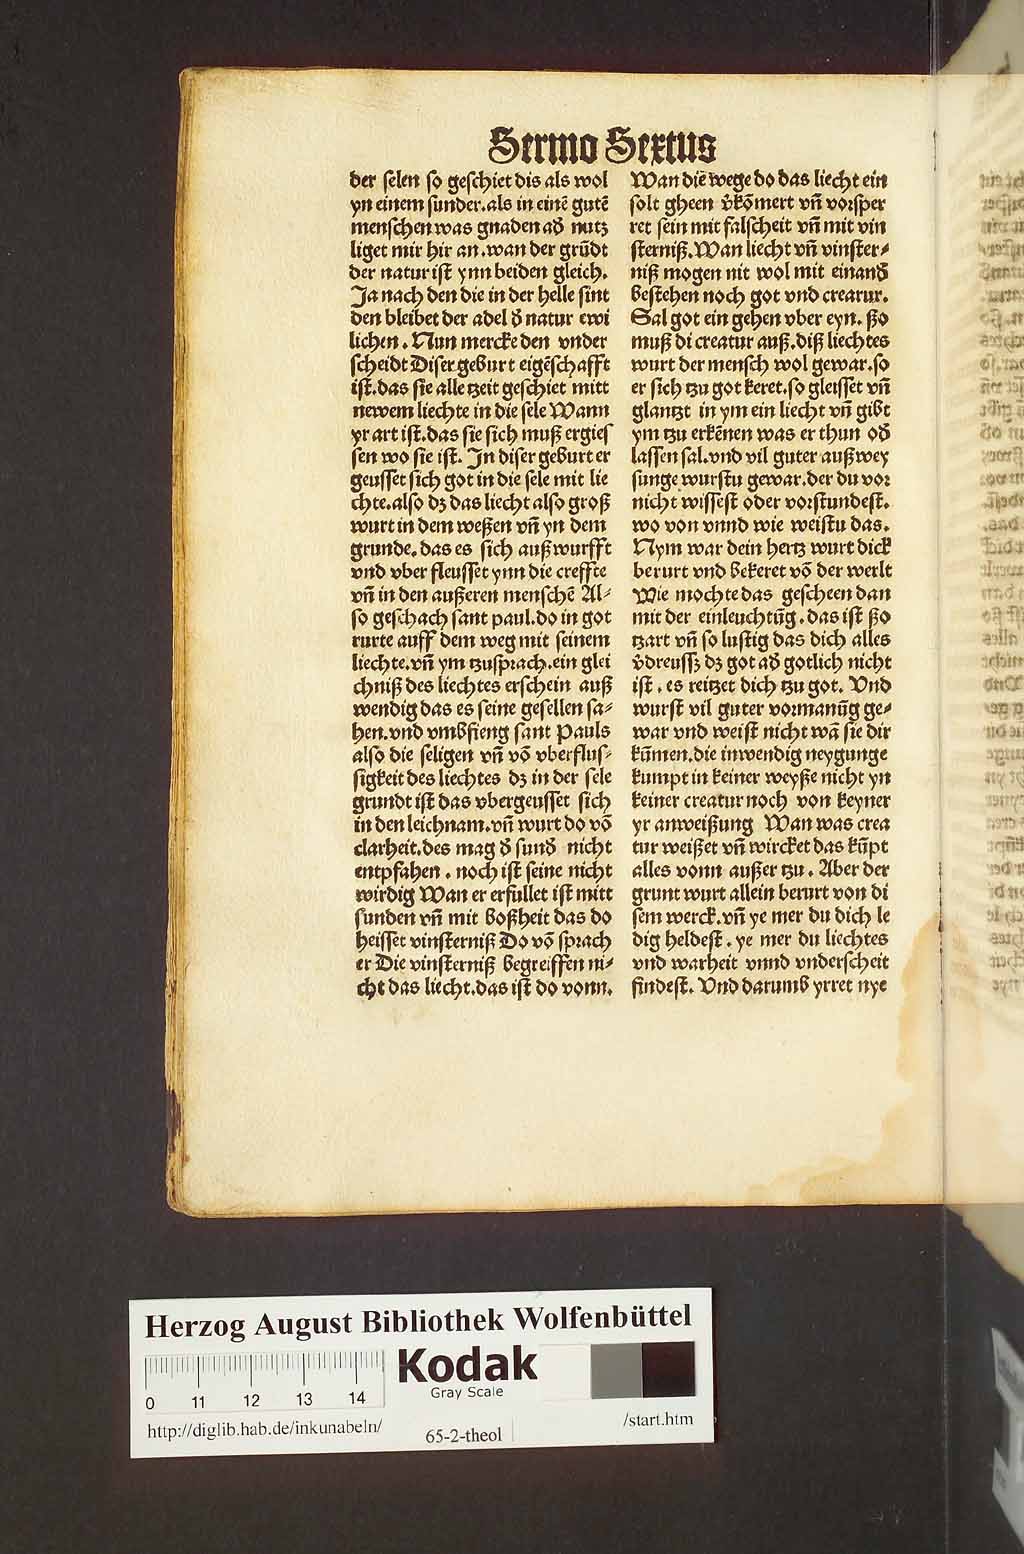 Sermo Sextus
der selen so geschiet dis als wol
yn einem sunder.als in einē gutē
menschen was gnaden ađ nutz
liget mir hir an.wan der grūdt
der natur ist ynn beiden gleich.
Ja nach den die in der helle sint
den bleibet der adel đ natur ewi
lichen. Nun mercke den vnder
scheidt Diser geburt eigēschafft
ist.das sie alle tzeit geschiet mitt
newem liechte in die sele Wann
yr art ist.das sie sich muß ergies
sen wo sie ist. Jn diser geburt er
geusset sich got in die sele mit lie
chte.also dz das liecht also groß
wurt in dem weßen vñ yn dem
grunde. das es sich außwurfft
vnd vber fleusset ynn die creffte
vñ in den außeren menschē Al⸗
so geschach sant paul.do in got
rurte auff dem weg mit seinem
liechte.vñ ym tzusprach.ein glei
chniß des liechtes erschein auß
wendig das es seine gesellen sa⸗
hen.vnd vmbfieng sant Pauls
also die seligen vñ vō vberflus⸗
sigkeit des liechtes dz in der sele
grundt ist das vbergeusset sich
in den leichnam.vñ wurt do vō
clarheit.des mag đ sunđ nicht
entpfahen. noch ist seine nicht
wirdig Wan er erfullet ist mitt
sunden vñ mit boßheit das do
heisset vinsterniß Do vō sprach
er Die vinsterniß begreiffen ni⸗
cht das liecht.das ist do vonn.
Wan diē wege do das liecht ein
solt gheen v̄kōmert vñ vorsper
ret sein mit falscheit vñ mit vin
sterniß.Wan liecht vñ vinster⸗
niß mogen nit wol mit einanđ
bestehen noch got vnd crearur.
Sal got ein gehen vber eyn. ßo
muß di creatur auß.diß liechtes
wurt der mensch wol gewar.so
er sich tzu got keret.so gleisset vñ
glantzt in ym ein liecht vñ gibt
ym tzu erkēnen was er thun ođ
lassen sal.vnd vil guter außwey
sunge wurstu gewar.der du vor
nicht wissest oder vorstundest.
wo von vnnd wie weistu das.
Nym war dein hertz wurt dick
berurt vnd bekeret vō der werlt
Wie mochte das gescheen dan
mit der einleuchtūg. das ist ßo
tzart vñ so lustig das dich alles
v̄dreussz dz got ađ gotlich nicht
ist. es reitzet dich tzu got. Vnd
wurst vil guter vormanūg ge⸗
war vnd weist nicht wā sie dir
kūmen.die inwendig neygunge
kumpt in keiner weyße nicht yn
keiner creatur noch von keyner
yr anweißung Wan was crea
tur weißet vñ wircket das kūpt
alles vonn außer tzu. Aber der
grunt wurt allein berurt von di
sem werck.vñ ye mer du dich le
dig heldest. ye mer du liechtes
vnd warheit vnnd vnderscheit
findest. Vnd darumb yrret nye
Herzog August Bibliothek Wolfenbüttel
Kodak
Gray Scale
0 11 12 13 14
http://diglib.hab.de/inkunabeln/
65-2-theol
/start.htm